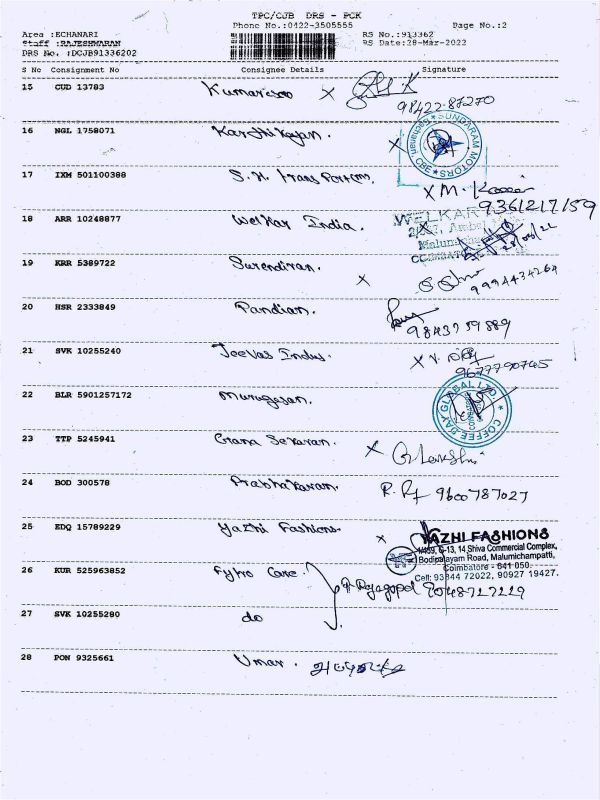 TPC/CJB DRS - PCK
Phone No.:0422-3505555 Page No.:2
Area :ECHANARI RS No.:913362
Staff :RAJESHWARAN RS Date:28-Mar-2022
DRS No. :DCJB91336202
S No Consignment No Consignee Details Signature
15 CUD 13783 Kumaresan
98422-87270
16 NGL 1758071 Karthikayan.
SUNDARAM MOTORS
CBE
17 IXM 501100388 S.N.
M.
9361217159
18 ARR 10248877 Welkar India.
WELKAR
19 KRR 5389722 Surendiran.
9994434264
20 HSR 2333849 Pandian.
9843759889
21 SVK 10255240 Jeevas Indus.
9677790745
22 BLR 5901257172 Murugasan.
COFFEE DAY GLOBAL LTD
23 TTP 5245941 Gana Sekaran.
24 BOD 300578 Prabhakaran. 9600787027
25 EDQ 15789229 Yazhi Fashions.
YAZHI FASHIONS
1/489, G-13, 14 Shiva Commercial Complex,
Bodipalayam Road, Malumichampatti,
Coimbatore - 641 050.
Cell: 93844 72022, 90927 19427.
26 KUR 525963852 Fypro Care. Rajagopal 9048727229
27 SVK 10255280 do
28 PON 9325661 Umar.